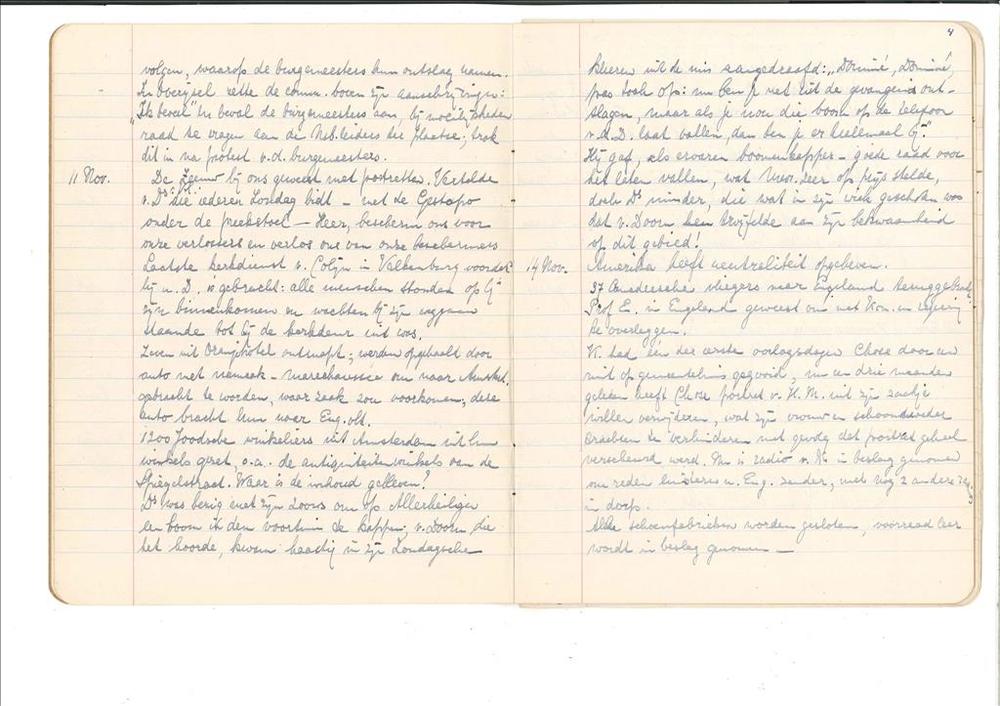 volgen, waarop de burgemeesters hun ontslag namen.
In Overijsel zette de comm. boven zijn aanschrijvingen:
"Ik beveel" en beval de burgemeesters aan, bij moeilijkheden
raad te vragen aan de Nsb.leiders ter plaatse; trok
dit in na protest v.d. burgemeesters.
11 Nov.
De Zeeuw bij ons geweest met portretten. Vertelde
v. Ds die iederen Zondag bidt – met de Gestapo
onder de preekstoel – Heer, bescherm ons voor
onze verlossers en verlos ons van onze beschermers
Laatste kerkdienst v. Colijn in Valkenburg voordat
hij n. D. is gebracht: alle menschen stonden op bij
zijn binnenkomen en wachtten bij zijn weggaan
staande tot hij de kerkdeur uit was.
Zeven uit Oranjehotel ontsnapt; werden opgehaald door
auto met namaak-marechaussee om naar Amsterd.
gebracht te worden, waar zaak zou voorkomen; deze
auto bracht hun naar Eng. vlt.
1200 Joodsche winkeliers uit Amsterdam uit hun
winkels gezet, o.a. de antiquiteitenwinkels van de
Spiegelstraat. Waar is de inhoud gebleven?
Ds was bezig met zijn zoons om op Allerheiligen
een boom in den voortuin te kappen; v. Doorn die
het hoorde, kwam haastig in zijn Zondagsche
4
kleeren uit de mis aangedraafd: "Dominé, Dominé,
pas toch op: nu ben je net uit de gevangenis ont-
slagen, maar als je nou die boom op de telefoon
v.d.D. laat vallen, dan ben je er heelemaal bij".
Hij gaf, als ervaren boomenkapper – goede raad voor
het laten vallen, wat Mevr. zeer op prijs stelde,
doch Ds minder, die wat in zijn wiek geschoten was
dat v. Doorn kon twijfelde aan zijn bekwaamheid
op dit gebied!
14 Nov.
Amerika heeft neutraliteit opgeheven.
37 vliegers naar Engeland teruggebracht
Prof E. in Engeland geweest om met Kon. en regeering
te overleggen.
V. had één der eerste oorlogsdagen Chose door een
ruit op gemeentehuis gegooid, nu een drie maanden
geleden heeft Chose portret v. H.M. uit zijn zaaltje
willen verwijderen, wat zijn vrouw en schoonmoeder
trachtten te verhinderen met gevolg dat portret geheel
verscheurd werd. Nu is radio v. Ds in beslag genomen
om reden luisteren n. Eng. zender, met nog 2 andere
in dorp.
Alle schoenfabrieken worden gesloten, voorraad leer
wordt in beslag genomen –